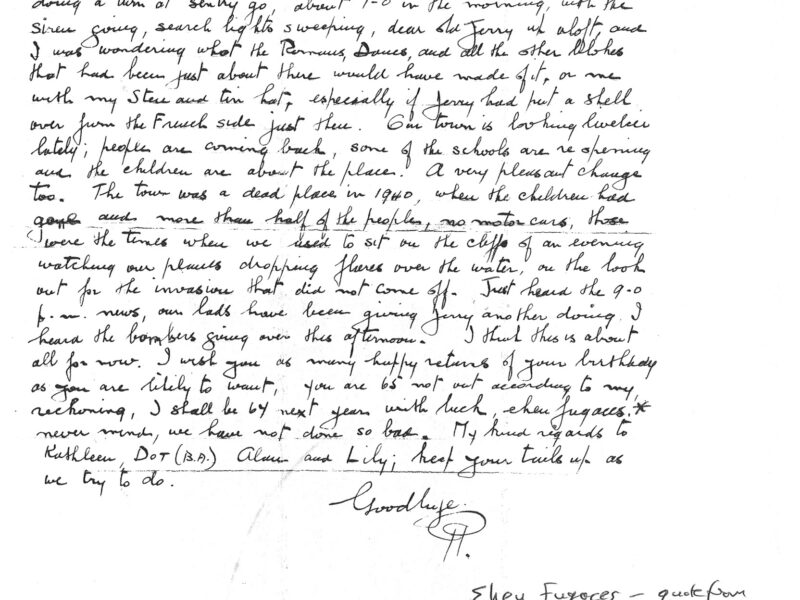 doing a turn at sentry go, about 1-0 in the morning, with the
siren going, search lights sweeping, dear old Jerry up aloft, and
I was wondering what the Romans, Danes, and all the other blokes
that had been just about there would have made of it, or me
with my Sten and tin hat, especially if Jerry had put a shell
over from the French side just then. Our town is looking livelier
lately; people are coming back, some of the schools are re opening
and the children are about the place. A very pleasant change
too. The town was a dead place in 1940, when the children had
gone and more than half of the people, no motor cars, those
were the times when we used to sit on the cliffs of an evening
watching our planes dropping flares over the water, on the look
out for the invasion that did not come off. Just heard the 9-0
p.m. news, our lads have been giving Jerry another doing. I
heard the bombers going over this afternoon. I think this is about
all for now. I wish you as many happy returns of your birthday
as you are likely to want, you are 65 not out according to my
reckoning, I shall be 64 next year with luck, eheu fugaces.*
never mind, we have not done so bad. My kind regards to
Kathleen, Dot (B.A.) Alan and Lily; keep your tails up as
we try to do.
Goodbye.
Eheu Fugaces - quote from